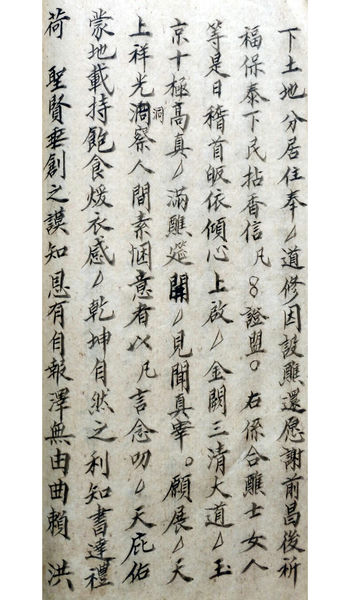 下土地分居住奉㇏道修因設醮還愿謝前昌後祈
福保泰下民拈香信凡 證盟。右係合醮士女人
等是日稽首皈依傾心上啟㇏金闕三清大道㇏玉
京十極高真㇏滿醮筵開㇏見聞真宰。願展㇏天
上祥光洞察人間素悃意者以凡言念叨㇏天庇佑
蒙地載持飽食煖衣感㇏乾坤自然之利知書達禮
荷 聖賢垂創之謨知恩有自報澤無由曲賴 洪